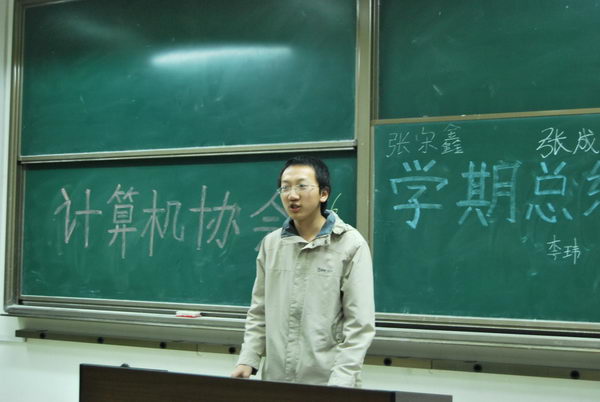 计算机协会
张宗鑫
张成
学期总结
李玮